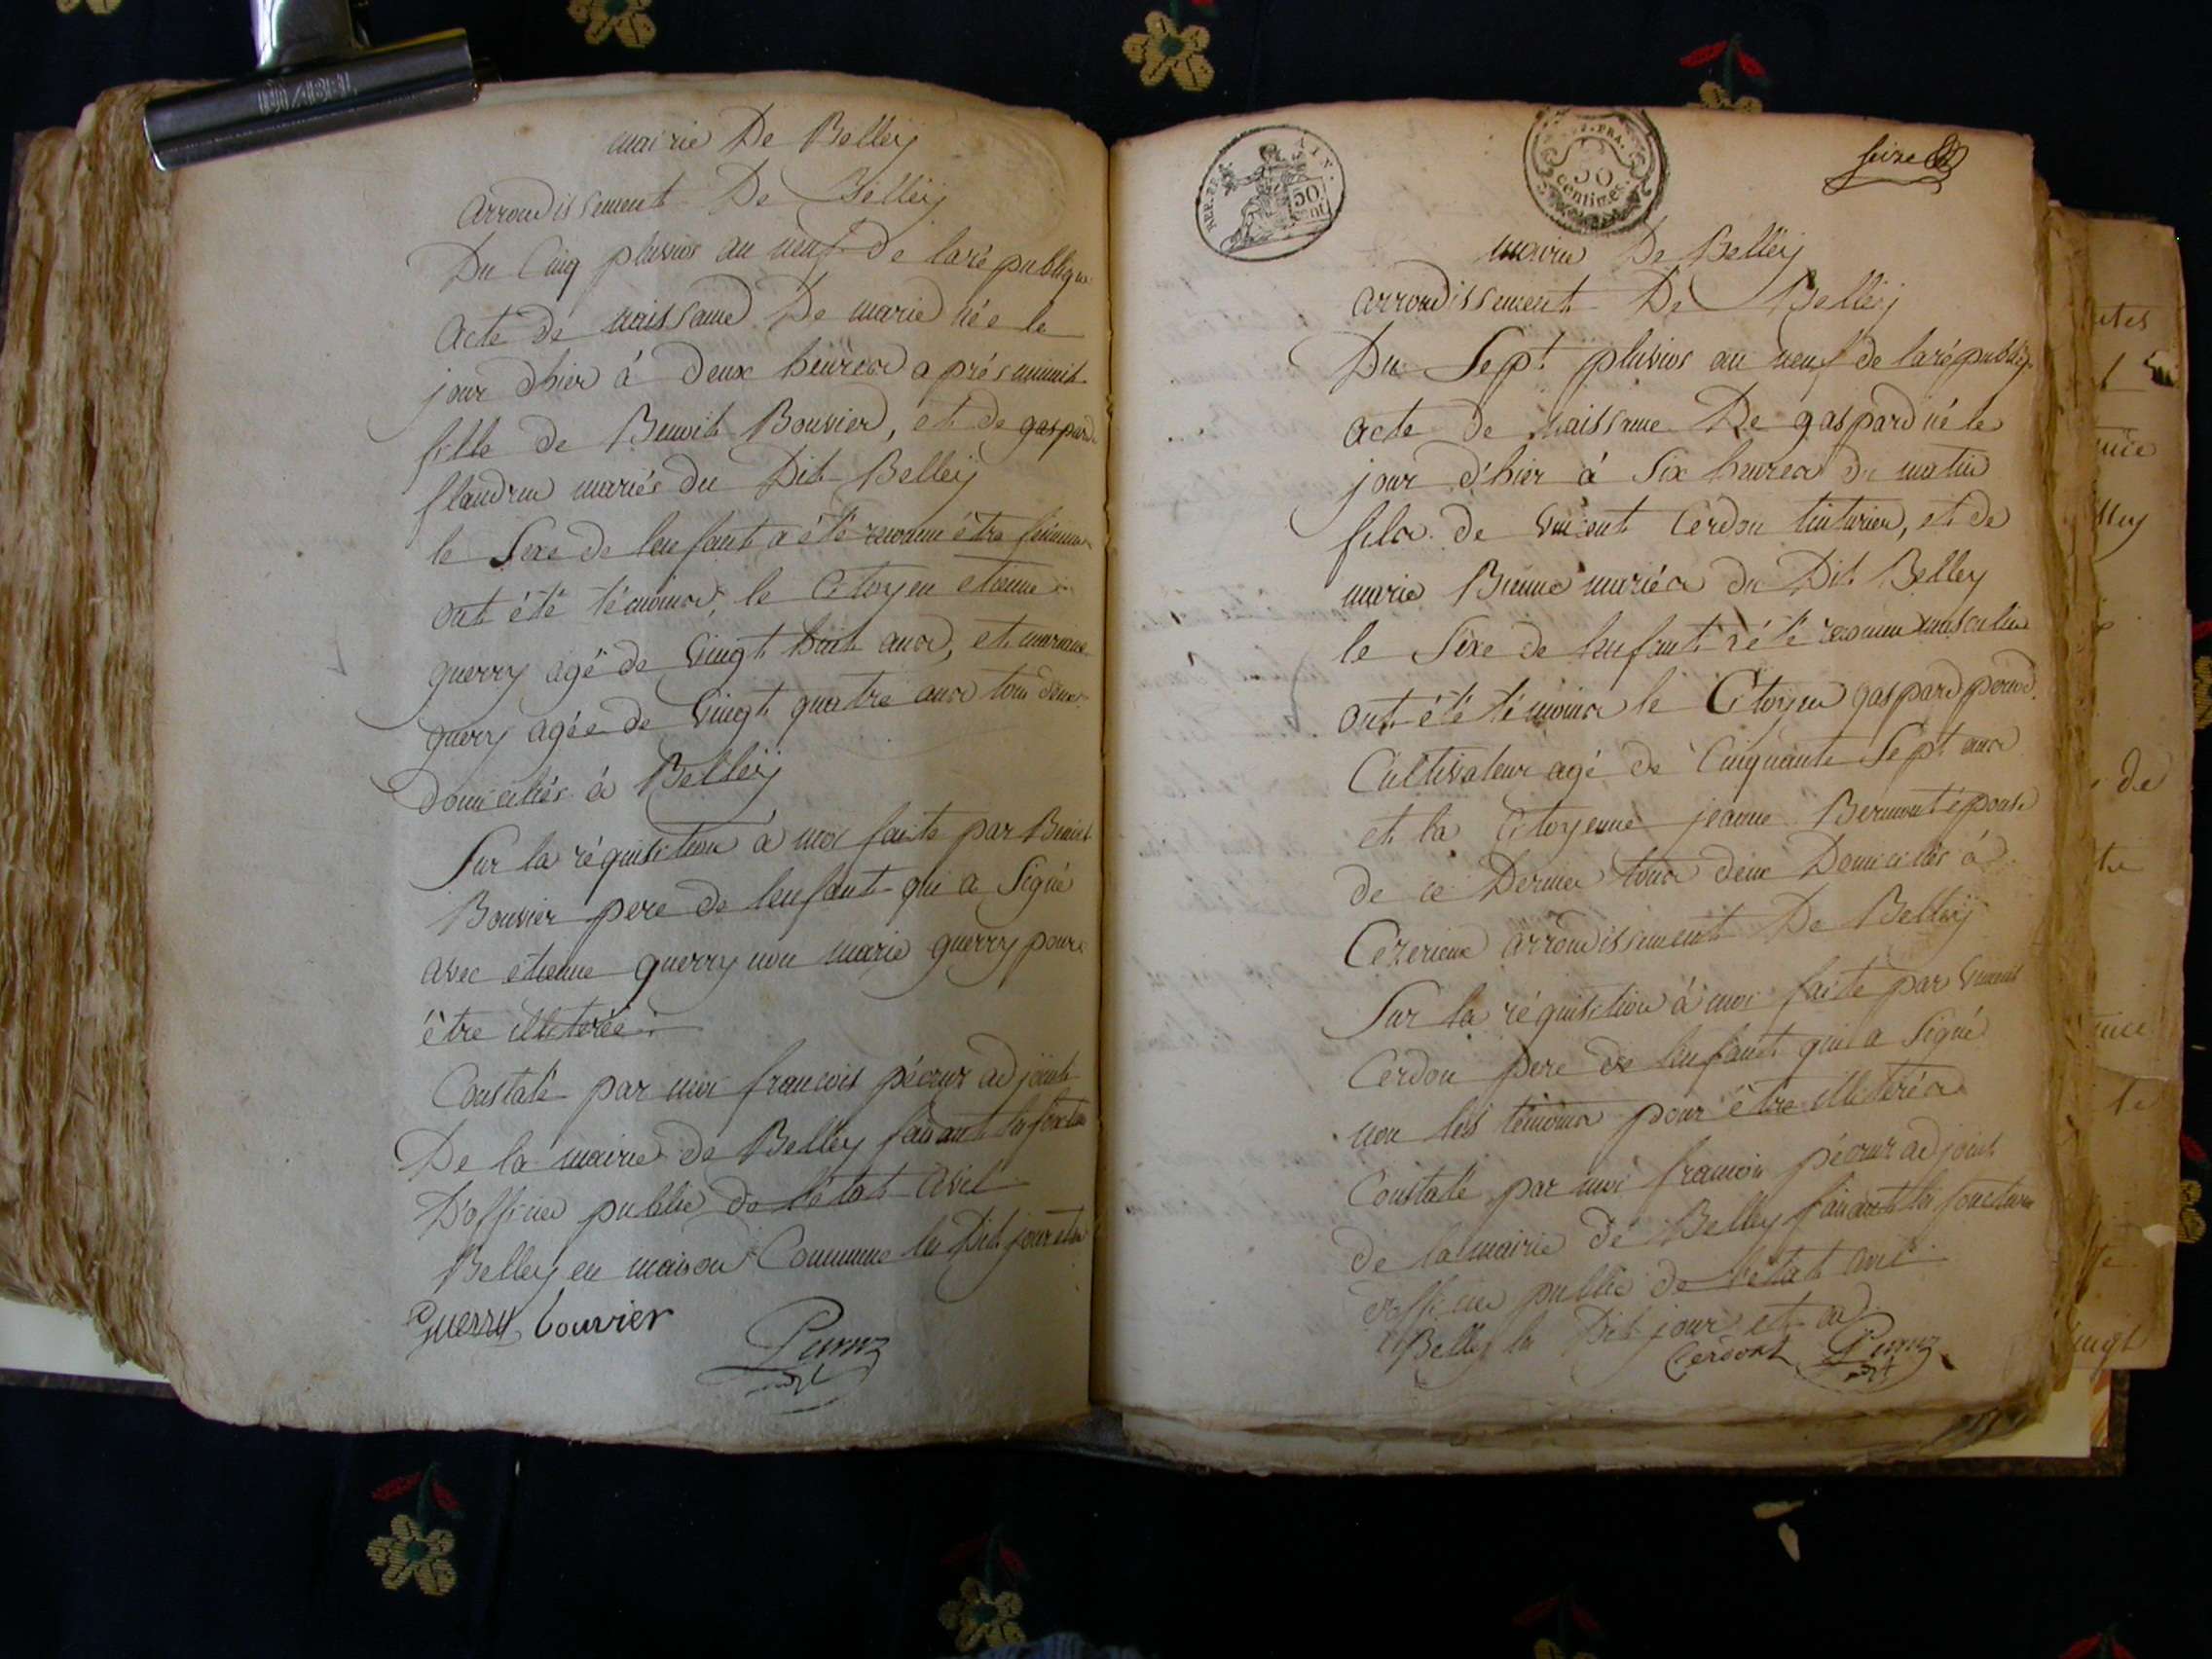 mairie De Belleÿ
arrondissement De Belleÿ
Du Cinq pluvios an neuf de la république
acte de naissance De marie née le
jour d'hier à deux heures après minuit
fille de Benoit Bouvier, et de gasparde
flandrin mariés du Dit Belleÿ
le Sexe de lenfant a été reconnu être féminin
ont été témoins, le Citoyen etienne
guerry agé de Vingt huit ans, et mariane
guerry agée de Vingt quatre ans tous deux
domiciliés à Belleÿ
Sur la réquisition à moi faite par Benoit
Bouvier pere de lenfant qui a Signé
avec etienne guerry non marie guerry pour
être illiterée
Constaté par moi francois pécour adjoint
De la mairie de Belley faisant les fontion
D'officier public de l'état Civil
Belley en maison Commune les Dit jour et an
guerry bouvier
REP. FRA.
AIN.
50
cent
FRA.
50
centimes.
seize
mairie De Belleÿ
arrondissement De Belleÿ
Du Sept pluvios an neuf de la républiq
acte de naissance De gaspard né le
jour d'hier à Six heures du matin
fils de Vincent Cerdon tinturier, et de
marie mariés du Dit Belley
le Sexe de lenfant a été reconnu masculin
ont été témoins le Citoyen gaspard
Cultivateur agé de Cinquante Sept ans
et la Citoyenne jeanne Bermont épouse
de ce Dernier tous deux Domiciliés à
Cezerieux arrondissement De Belleÿ
Sur la réquisition à moi faite par Vincent
Cerdon pere de lenfant qui a Signé
non les témoins pour être illiterés
Constaté par moi francois pécour adjoint
de la mairie de Belley faisant les fonctions
d'officier public de l'état Civil
à Belley les Dit jour et an
Cerdont